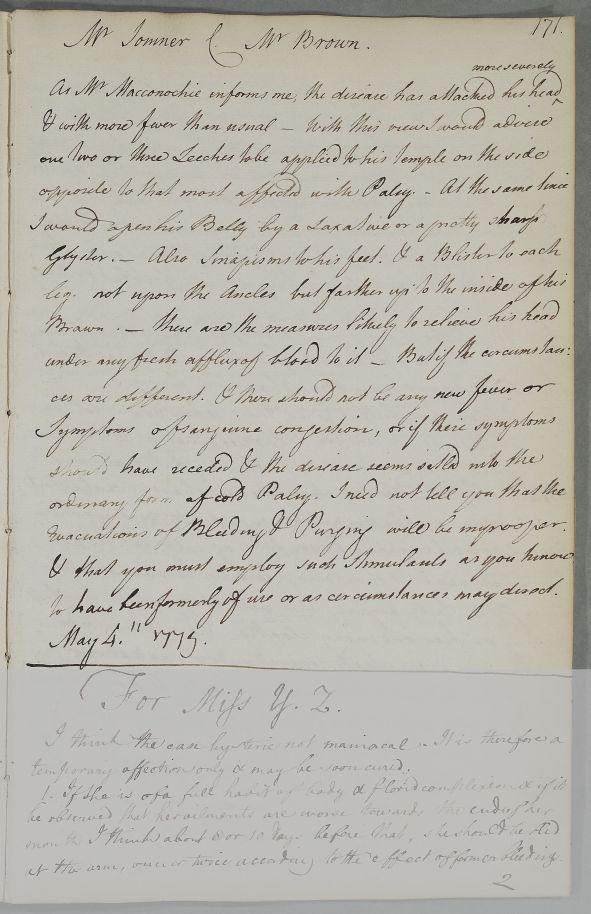 171.
Mr Somner C. Mr Brown.
more severely
As Mr Macconochie informs me, the disease has attacked his head ^
& with more fever than usual – With this view I would advise
one two or three Leeches to be applied to his temple on the side
opposite to that most affected with Palsy. – At the same time
I would open his Belly by a Laxative or a pretty sharp
Glyster. – Also Sinapisms to his feet. & a Blister to each
leg. not upon the Ancles but farther up to the inside of his
Brawn. – These are the measures likely to relieve his head
under any fresh afflux of blood to it – But if the circumstan:
ces are different. & there should not be any new fever or
Symptoms of sanguine congestion, or if these symptoms
should have receded & the disease seems settld into the
ordinary form of cold Palsy. I need not tell you that the
Evacuations of Bleeding & Purging will be improper.
& that you must employ such Stimulants as you know
to have been formerly of use or as circumstances may direct.
May 4.th 1779.
For Miss Y. Z.
I think the case hysteric not maniacal – It is therefore a
temporary affection only & may be soon cured.
1. If she is of a full habit of body & florid complexion & if it
be observed that her ailments are worse towards the end of her
month I think about 8 or 10 days before that, she should be bled
at the arm, once or twice according to the effect of former bleedings.
2